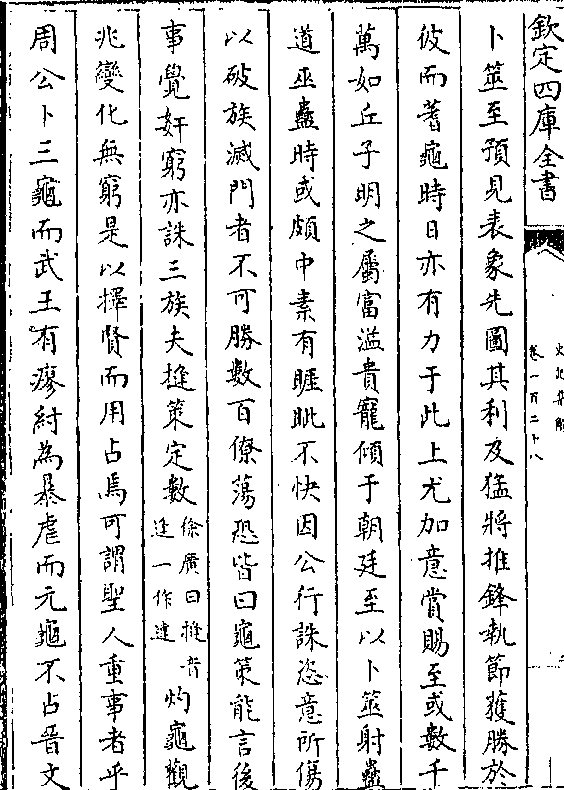 欽定四庫全書
史記集解
卷一百二十八
卜筮至預見表象先圖其利及猛將推鋒執節獲勝於
彼而蓍龜時日亦有力于此上尤加意賞賜至或數千
萬如丘子明之屬富溢貴寵傾于朝廷至以卜筮射蠱
道巫蠱時或頗中素有睚眦不快因公行誅恣意所傷
以破族滅門者不可勝數百僚蕩恐皆曰龜策能言後
事覺奸窮亦誅三族夫摓策定數徐廣曰摓音逢一作達灼龜觀
兆變化無窮是以擇賢而用占焉可謂聖人重事者乎
周公卜三龜而武王有瘳紂為暴虐而元龜不占晉文